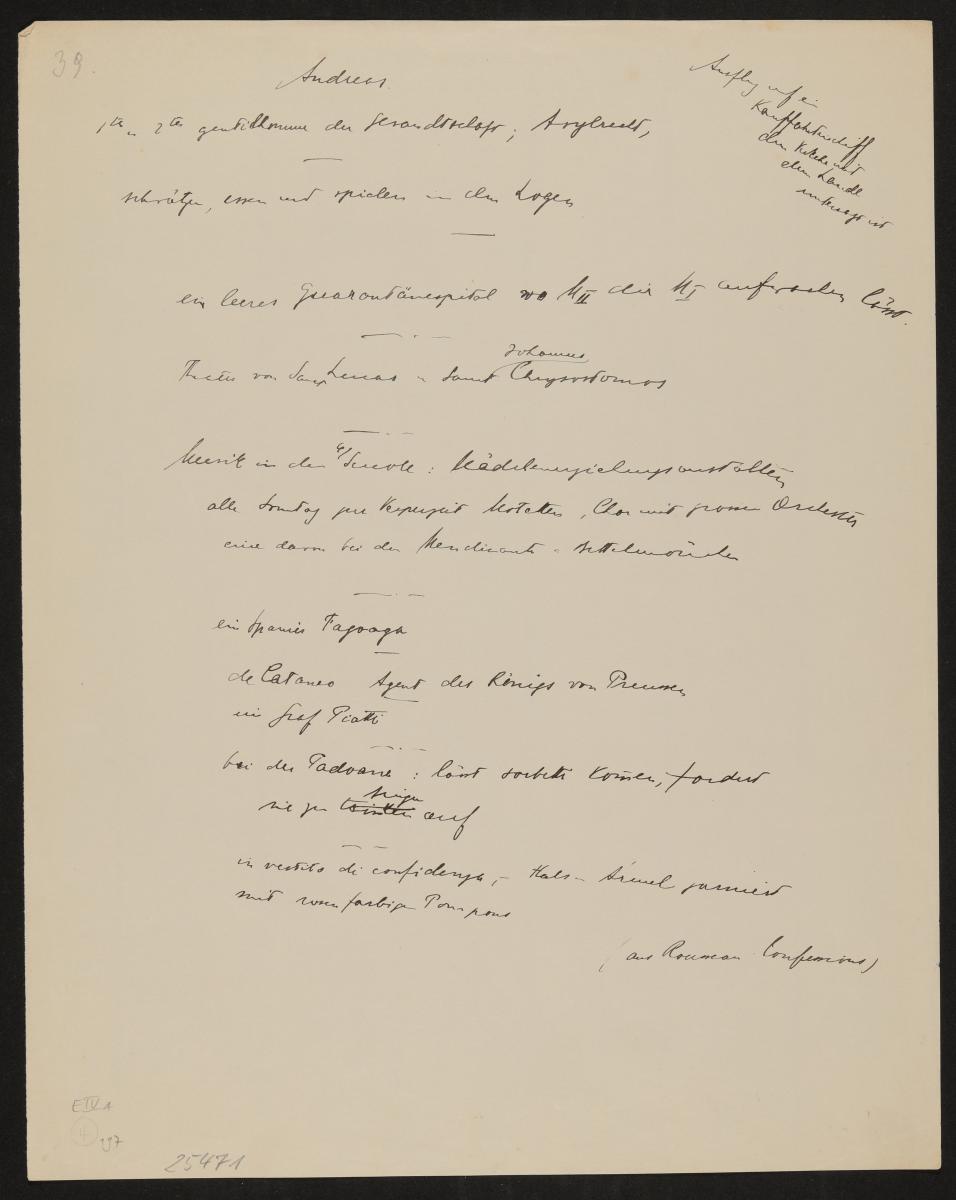 39.
Andreas.
Ausflug auf ein
Kauffahrteischiff
dem Verkehr mit
dem Lande
untersagt ist
1ter u 2ter gentilhomme der Gesandtschaft; Asylrecht,
schwätzen, essen und spielen in den Logen
ein leeres Quarantänespital wo M II die M I aufwachen lässt.
Theater von Sanct Lucas u Sanct Chrysostomos
Johannes
Musik in den 4 Scuole: Mädchenerziehungsanstalten
alle Sonntag zur Vesperzeit Motetten, Chor mit grossem Orchester
eine davon bei den Mendicanti = Bettelmönchen
ein Spanier Fagoaga
de Cataneo Agent des Königs von Preussen
ein Graf Piatti
bei der Padoana: lässt sorbetti kommen, fordert
singen
sie zu trinken auf
in vestito di confidenza, – Hals u Ärmel garniert
mit rosenfarbigen Pompons
(aus Rousseau Confessions)
E IV 1
4
197
25471